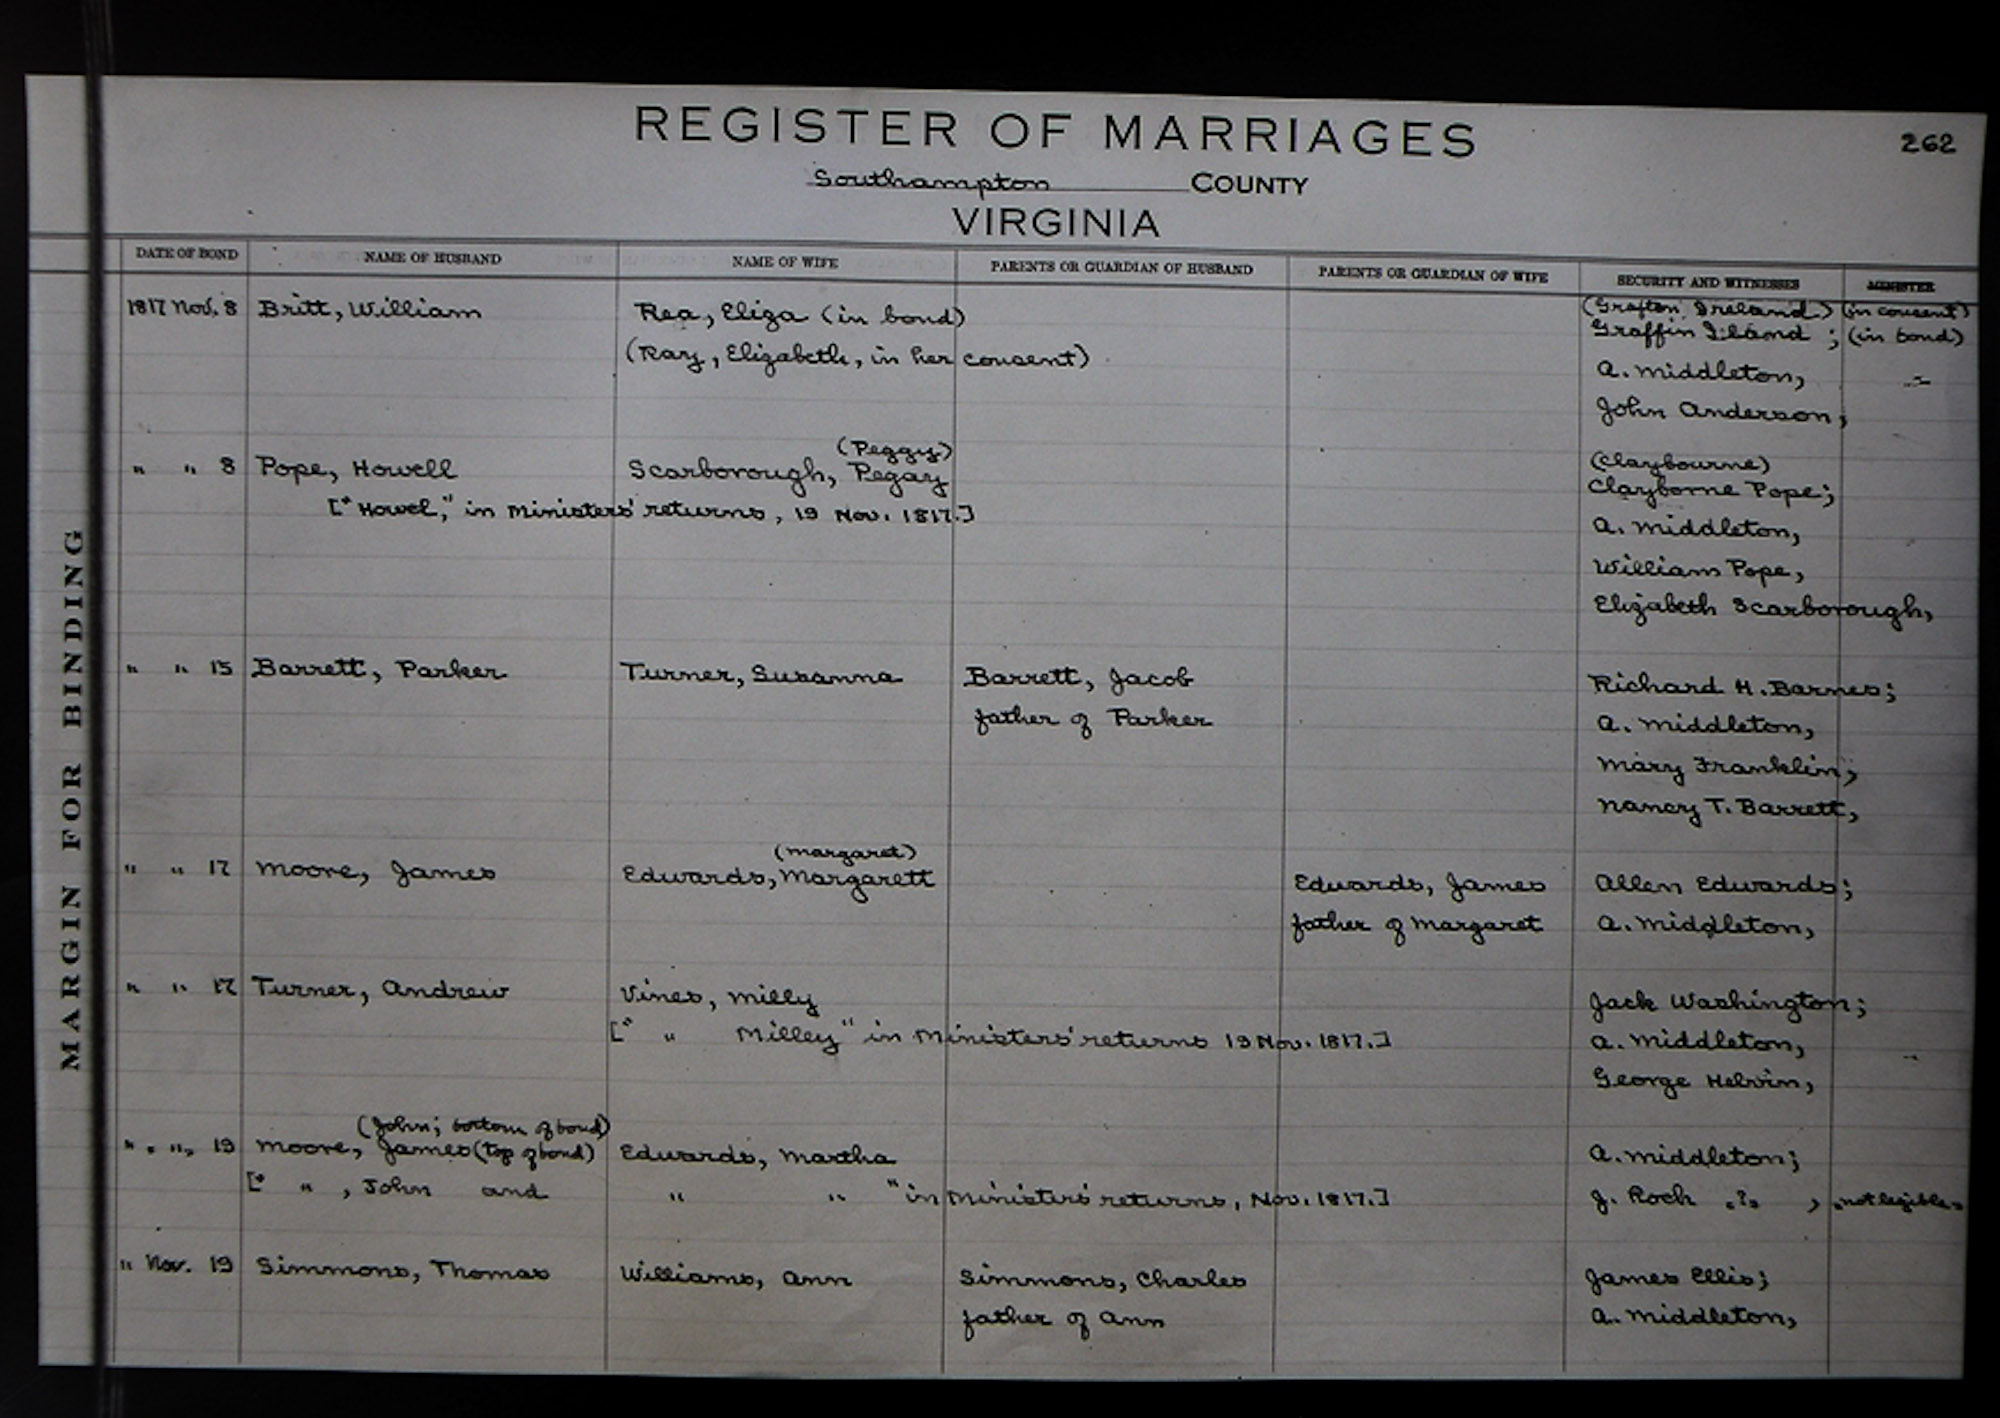 REGISTER OF MARRIAGES
262
Southampton COUNTY
VIRGINIA
MARGIN FOR BINDING
DATE OF BOND NAME OF HUSBAND NAME OF WIFE PARENTS OR GUARDIAN OF HUSBAND PARENTS OR GUARDIAN OF WIFE SECURITY AND WITNESSES MINISTER
(Grafton Ireland) (in consent)
1817 Nov. 8 Britt, William Rea, Eliza (in bond) Graffin Iland ; (in bond)
(Ray, Elizabeth, in her consent) A. Middleton,
John Anderson,
(Peggy) (Claybourne)
" " 8 Pope, Howell Scarborough, Pegay Clayborne Pope;
["Howel," in Ministers' returns, 19 Nov. 1817.] A. Middleton,
William Pope,
Elizabeth Scarborough,
" " 15 Barrett, Parker Turner, Susanna Barrett, Jacob Richard H. Barnes;
father of Parker A. Middleton,
Mary Franklin,
Nancy T. Barrett,
(Margaret)
" " 17 Moore, James Edwards, Margarett Edwards, James Allen Edwards;
father of Margaret A. Middleton,
" " 17 Turner, Andrew Vines, Milly Jack Washington;
[" " Milley" in Ministers' returns 19 Nov. 1817.] A. Middleton,
George Helvin,
(John; bottom of bond)
" " 19 Moore, James (top of bond) Edwards, Martha A. Middleton;
[" " , John and " " " in Ministers' returns, Nov. 1817.] J. Roch "?" , "not legible"
" Nov. 19 Simmons, Thomas Williams, Ann Simmons, Charles James Ellis;
father of Ann A. Middleton,